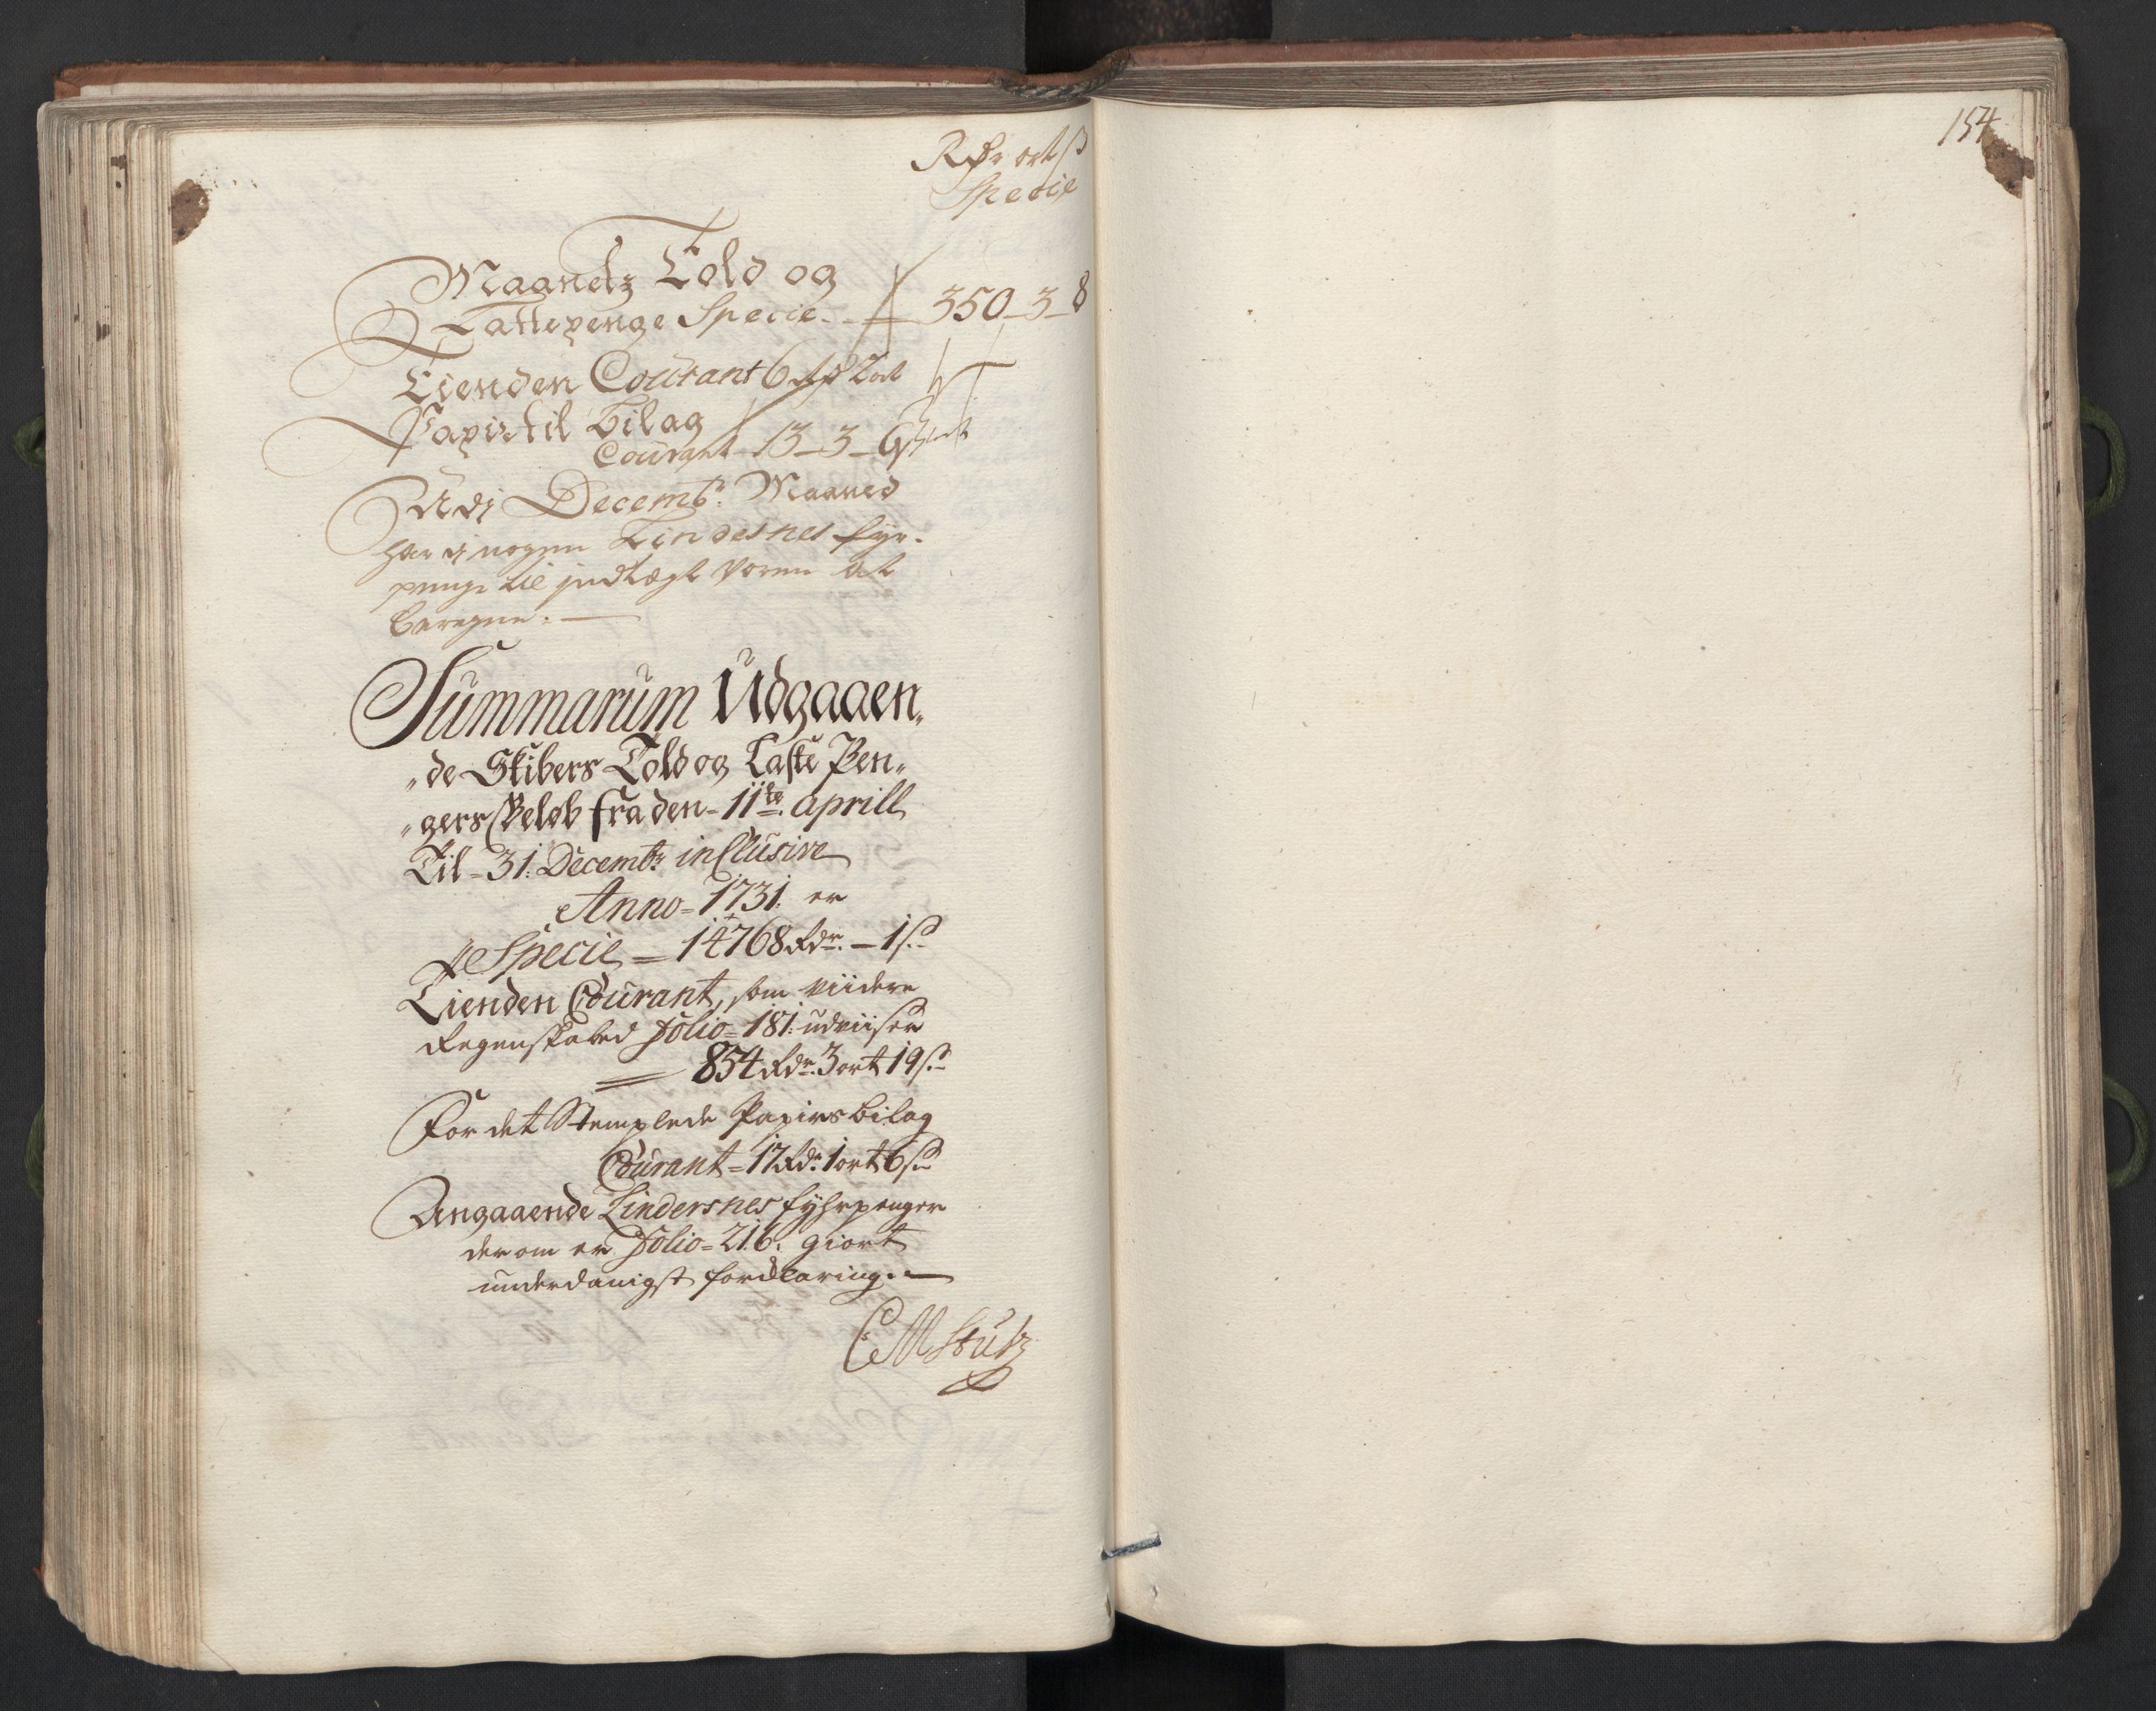 Rdr ort s
Specie
Maanetz Told og
Lastepenge Specie. 350 - 3 - 8
Tienden Courant 6
Papir til Bilag
Courant 13 - 3 - 6
Udj Decembr. Maaned
har ej nogen Lindesnes fyr-
penge til indtægt voren at
beregne. —
Summarum Udgaaen„
„de Skibers Told og Laste Pen„
„gers Beløb fra den - 11te. aprill
Til - 31: Decembr: inclusive
Anno - 1731: er
Specie = 14768 Rdr. - 1 s.
Tienden Courant, som viidere
Regenskabed Folio = 181: udviiser
= 854 Rdr. 3 ort 19 s.
For det Stemplede Papirs bilag
Courant = 17 Rdr. 1 ort 6 s.
Angaaende Lindersnes fyhrpenger
derom er Folio = 216: giort
underdanigst forklaring. —
CM Stub
154